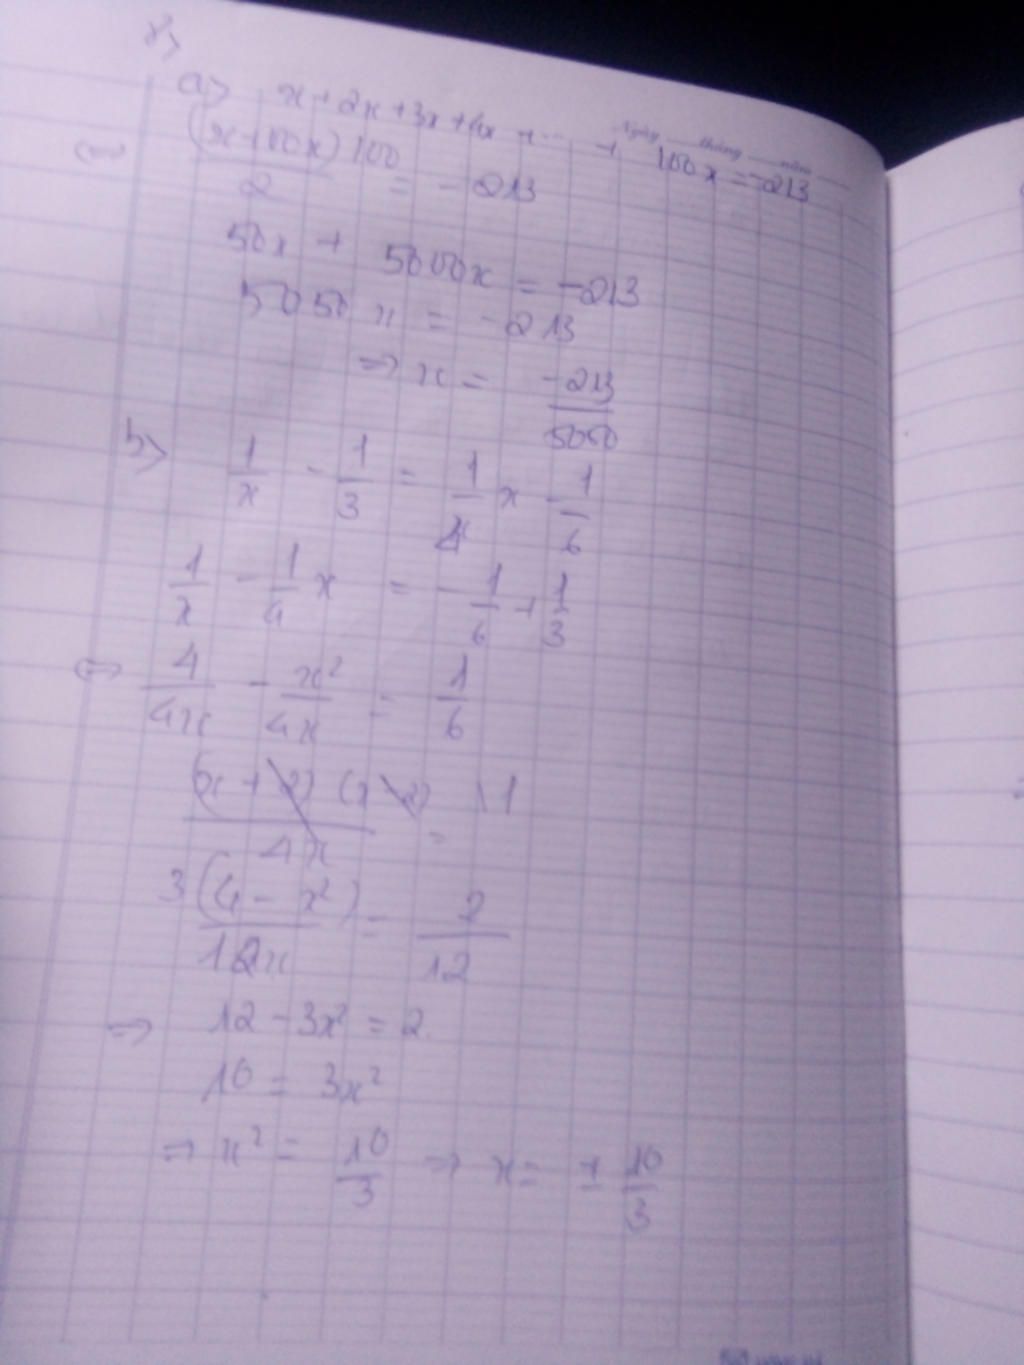 8>
a> x + 2x + 3x + 4x + ... + 100x = -213
Ngày tháng năm
<=> (x+100x)100 / 2 = -213
50x + 5000x = -213
5050x = -213
=> x = -213/5050
b> 1/x - 1/3 = 1/4 x - 1/6
1/x - 1/4 x = -1/6 + 1/3
<=> 4/4x - x²/4x = 1/6
(x + 2) (x - 2) / 4x = 1
3(4 - x²) / 12x = 2/12
=> 12 - 3x² = 2
10 = 3x²
=> x² = 10/3 => x = ± 10/3